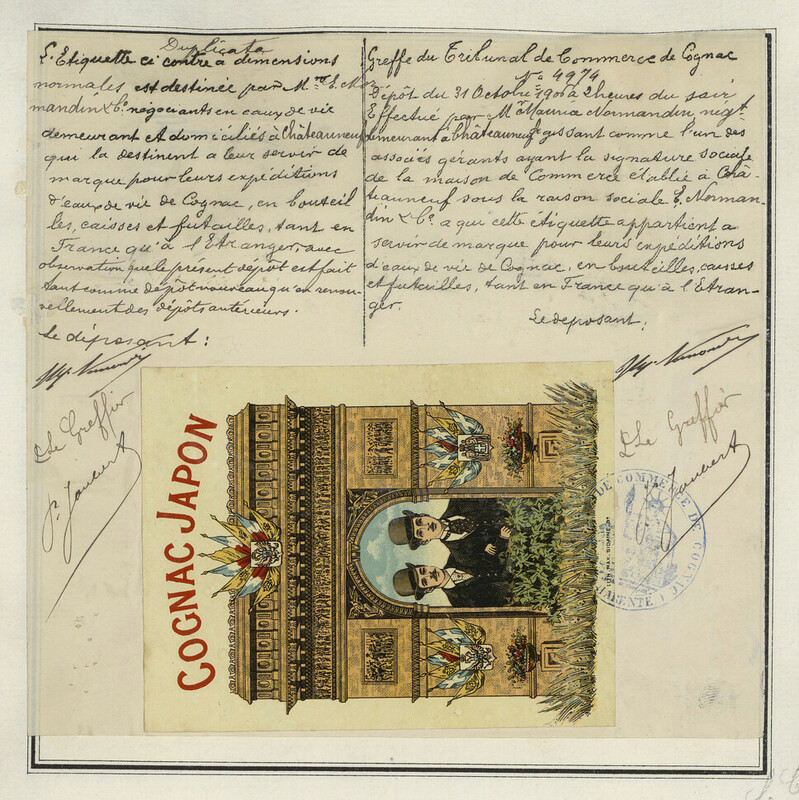 Duplicata
L'Etiquette ci contre a dimensions
normales est destinée par Mr. E. Nor
mandin & Co. négociants en eaux de vie
demeurant et domiciliés à Châteauneuf
qui la destinent a leur servir de
marque pour leurs expéditions
d'eaux de vie de Cognac, en bouteil
les, caisses et futailles, tant en
France qu'à l'Etranger, avec
observation que le présent dépôt est fait
tant comme dépôt nouveau qu'en renou-
vellement des dépôts antérieurs.
Le déposant:
Le Greffier
P. Joubert
Greffe du Tribunal de Commerce de Cognac
No 4974
Dépôt du 31 Octobre 1900 à 2 heures du soir
Effectué par Mr Maurice Normandin, négt
demeurant à Châteauneuf agissant comme l'un des
associés gérants ayant la signature sociale
de la maison de Commerce établie à Châ-
teauneuf sous la raison sociale E. Norman-
din & Co. a qui cette étiquette appartient a
servir de marque pour leurs expéditions
d'eaux de vie de Cognac, en bouteilles, caisses
et futailles, tant en France qu'à l'Etran-
ger.
Le déposant:
Le Greffier
P. Joubert
COGNAC JAPON
DE COMMERCE DE COGNAC
CHARENTE